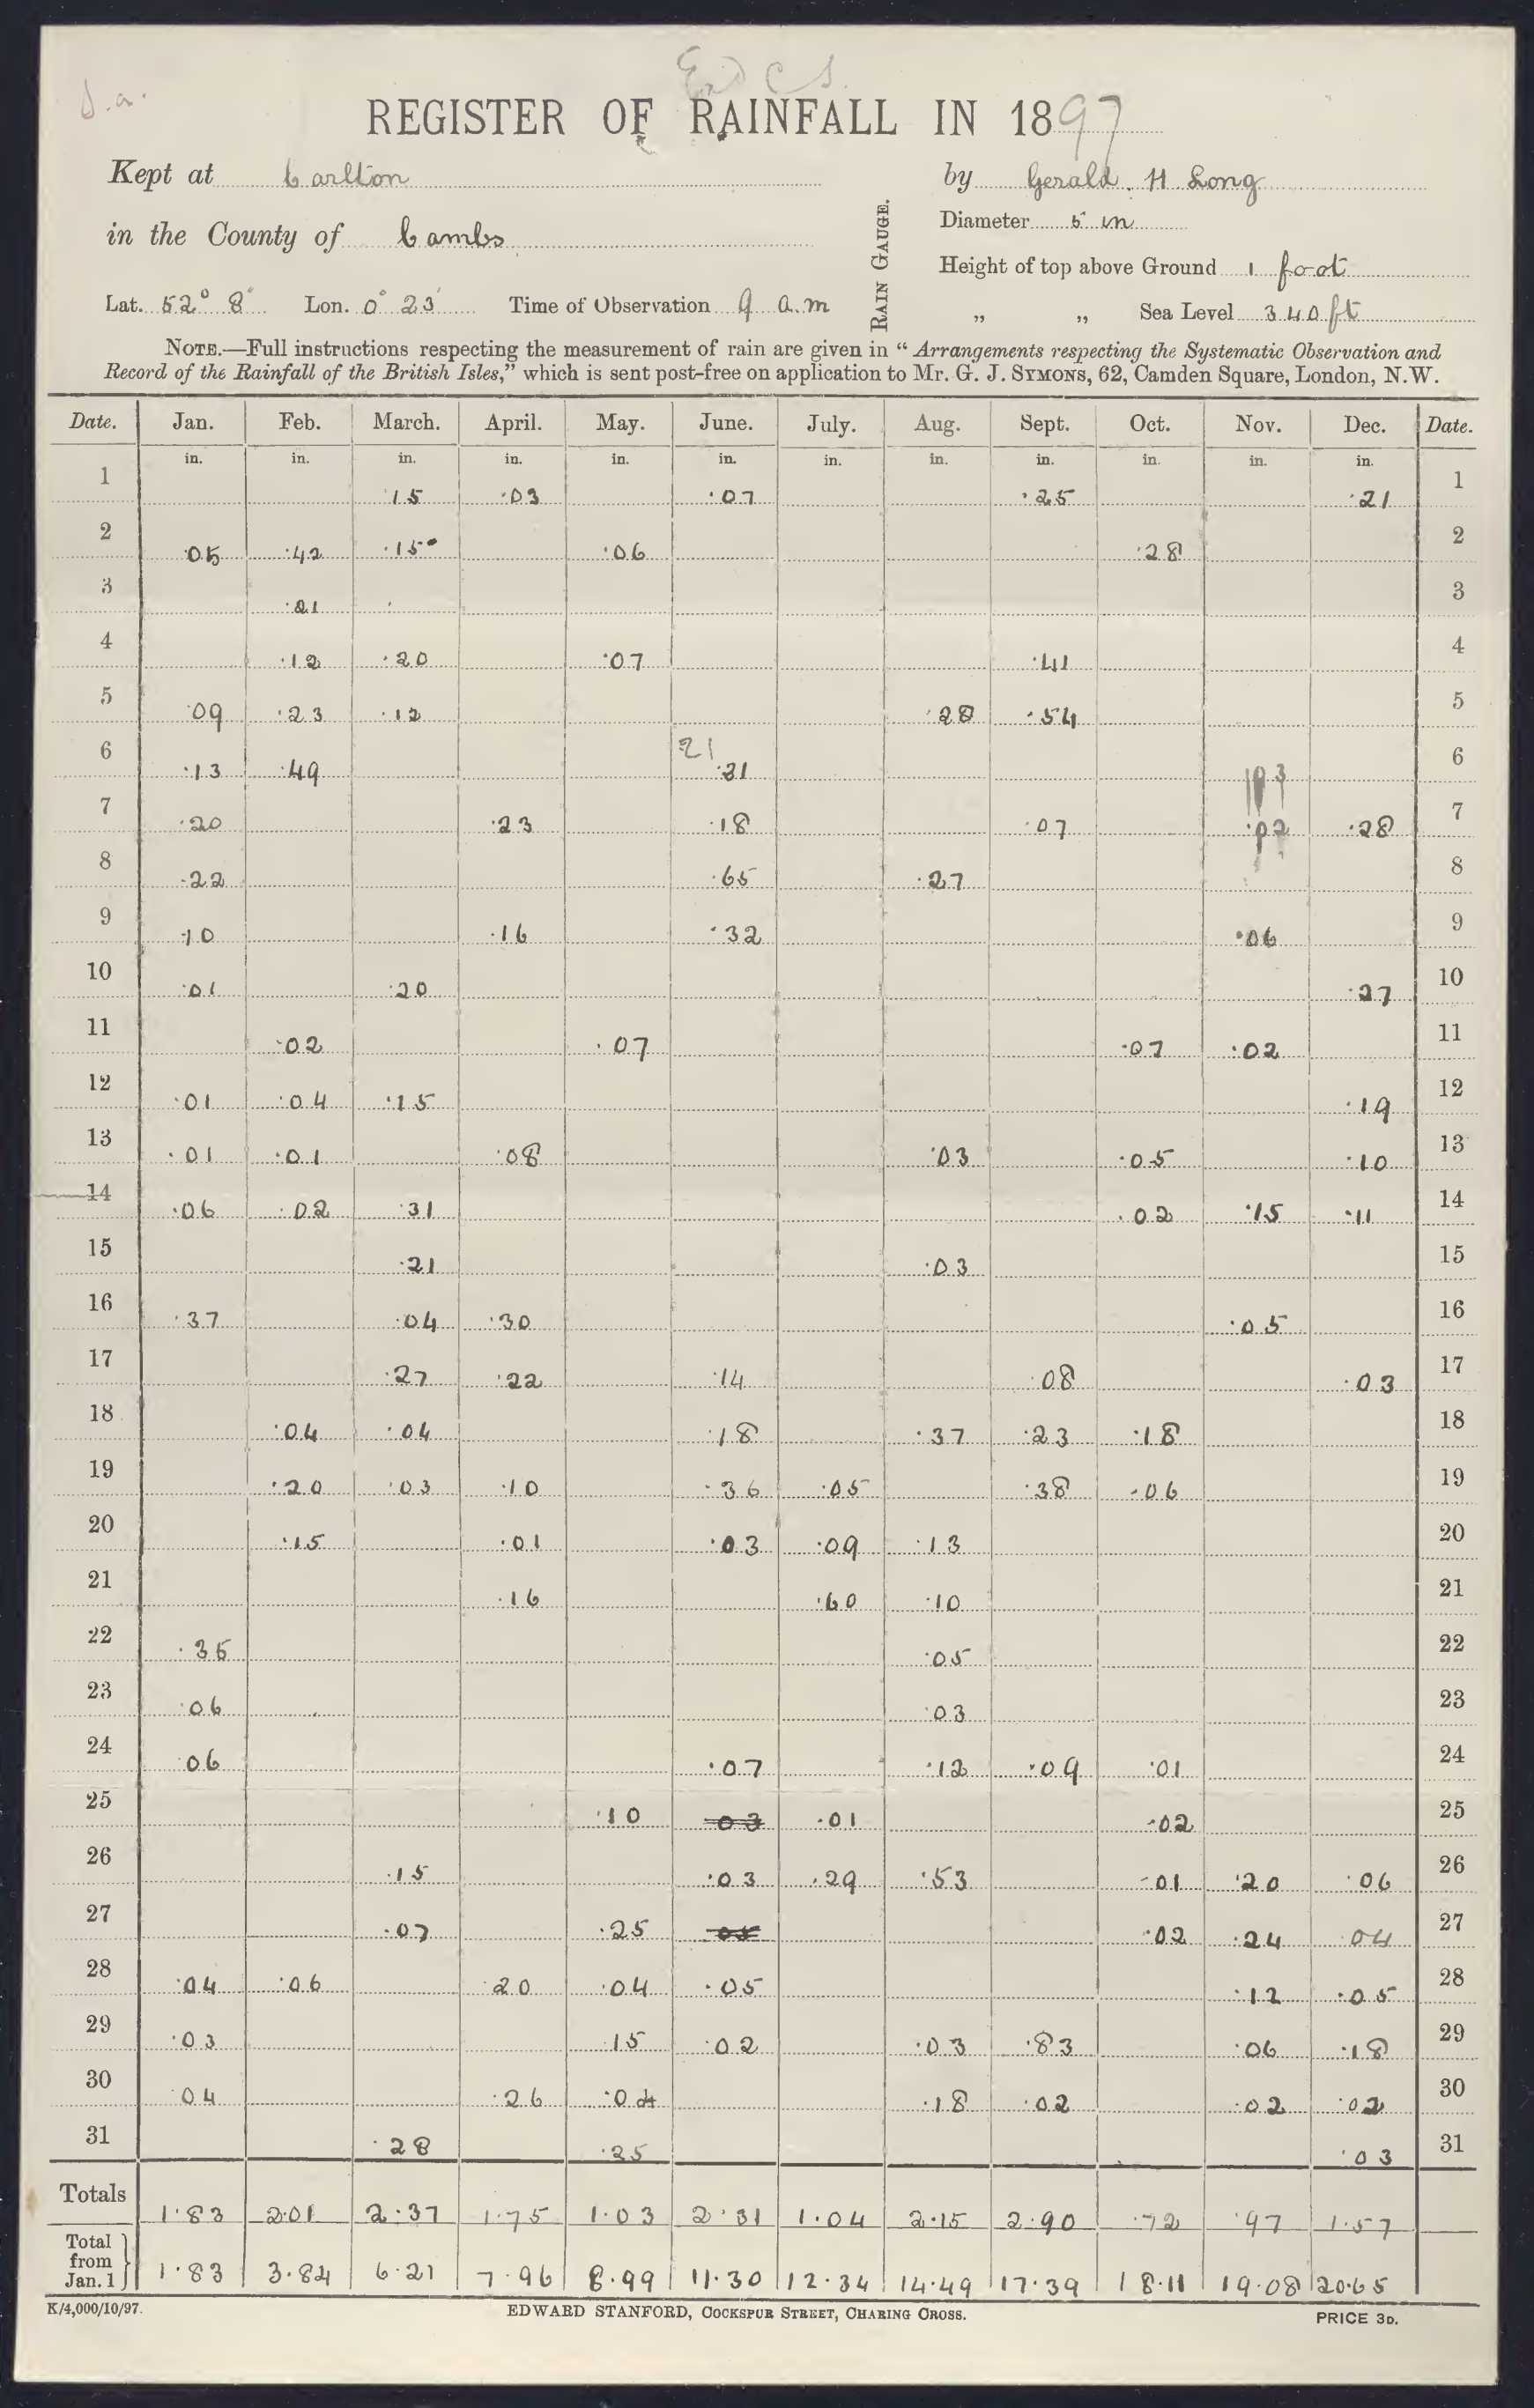 S.a.
End C S.
REGISTER OF RAINFALL IN 1897
Kept at Carlton by Gerald. H Long
in the County of Cambs
RAIN GAUGE.
Diameter 5 in
Height of top above Ground 1 foot
Lat. 52° 8' Lon. 0° 23' Time of Observation 9 a.m
„ „ Sea Level 340 ft
NOTE.—Full instructions respecting the measurement of rain are given in “ Arrangements respecting the Systematic Observation and
Record of the Rainfall of the British Isles,” which is sent post-free on application to Mr. G. J. SYMONS, 62, Camden Square, London, N.W.
Date. Jan. Feb. March. April. May. June. July. Aug. Sept. Oct. Nov. Dec. Date.
in. in. in. in. in. in. in. in. in. in. in. in.
1 .15 .03 .07 .25 .21 1
2 .05 .42 .15 .06 .28 2
3 .21 3
4 .12 .20 .07 .41 4
5 .09 .23 .12 .28 .54 5
6 .13 .49 21 .21 .03 6
7 .20 .23 .18 .07 .02 .28 7
8 .22 .65 .27 8
9 .10 .16 .32 .06 9
10 .01 .20 .27 10
11 .02 .07 .07 .02 11
12 .01 .04 .15 .19 12
13 .01 .01 .08 .03 .05 .10 13
14 .06 .02 .31 .02 .15 .11 14
15 .21 .03 15
16 .37 .04 .30 .05 16
17 .27 .22 .14 .08 .03 17
18 .04 .04 .18 .37 .23 .18 18
19 .20 .03 .10 .36 .05 .38 .06 19
20 .15 .01 .03 .09 .13 20
21 .16 .60 .10 21
22 .35 .05 22
23 .06 .03 23
24 .06 .07 .12 .09 .01 24
25 .10 03 .01 .02 25
26 .15 .03 .29 .53 .01 .20 .06 26
27 .07 .25 05 .02 .24 .04 27
28 .04 .06 .20 .04 .05 .12 .05 28
29 .03 .15 .02 .03 .83 .06 .18 29
30 .04 .26 .04 .18 .02 .02 .02 30
31 .28 .25 .03 31
Totals 1.83 2.01 2.37 1.75 1.03 2.31 1.04 2.15 2.90 .72 .97 1.57
Total from Jan. 1 1.83 3.84 6.21 7.96 8.99 11.30 12.34 14.49 17.39 18.11 19.08 20.65
K/4,000/10/97. EDWARD STANFORD, COCKSPUR STREET, CHARING CROSS. PRICE 3D.